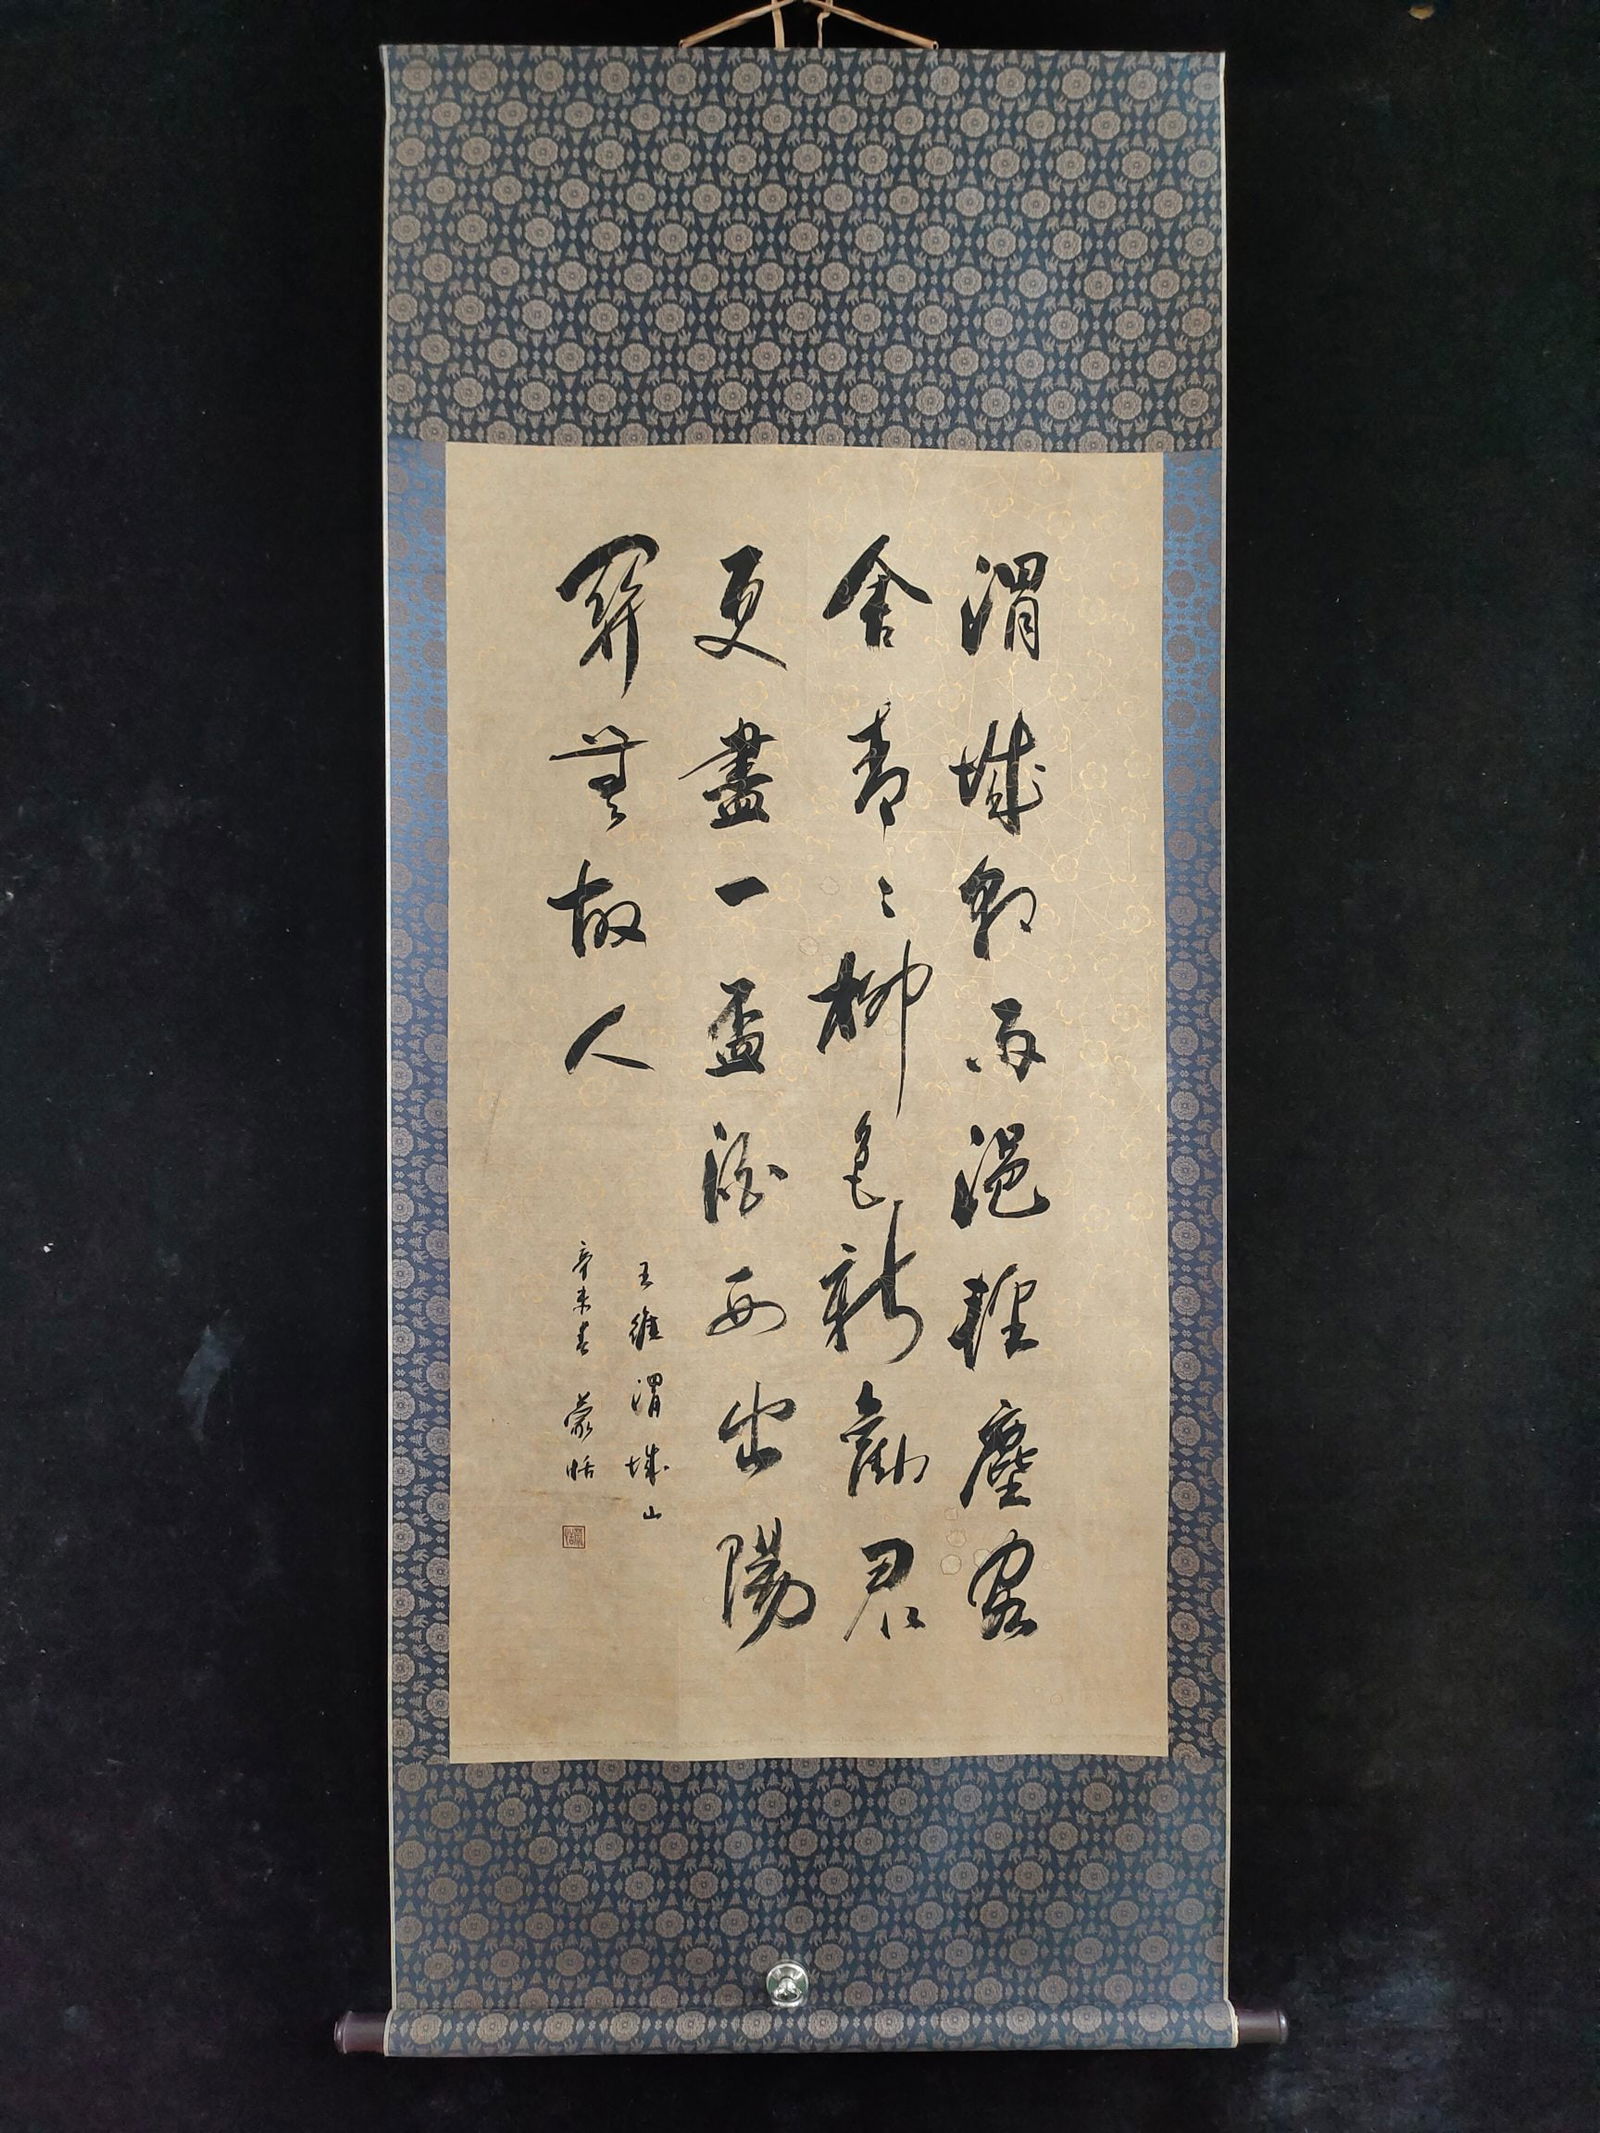 渭城朝雨浥輕塵客
舍青〻柳色新勸君
更盡一盃酒西出陽
關無故人
王維渭城曲
辛未春 蒙恬